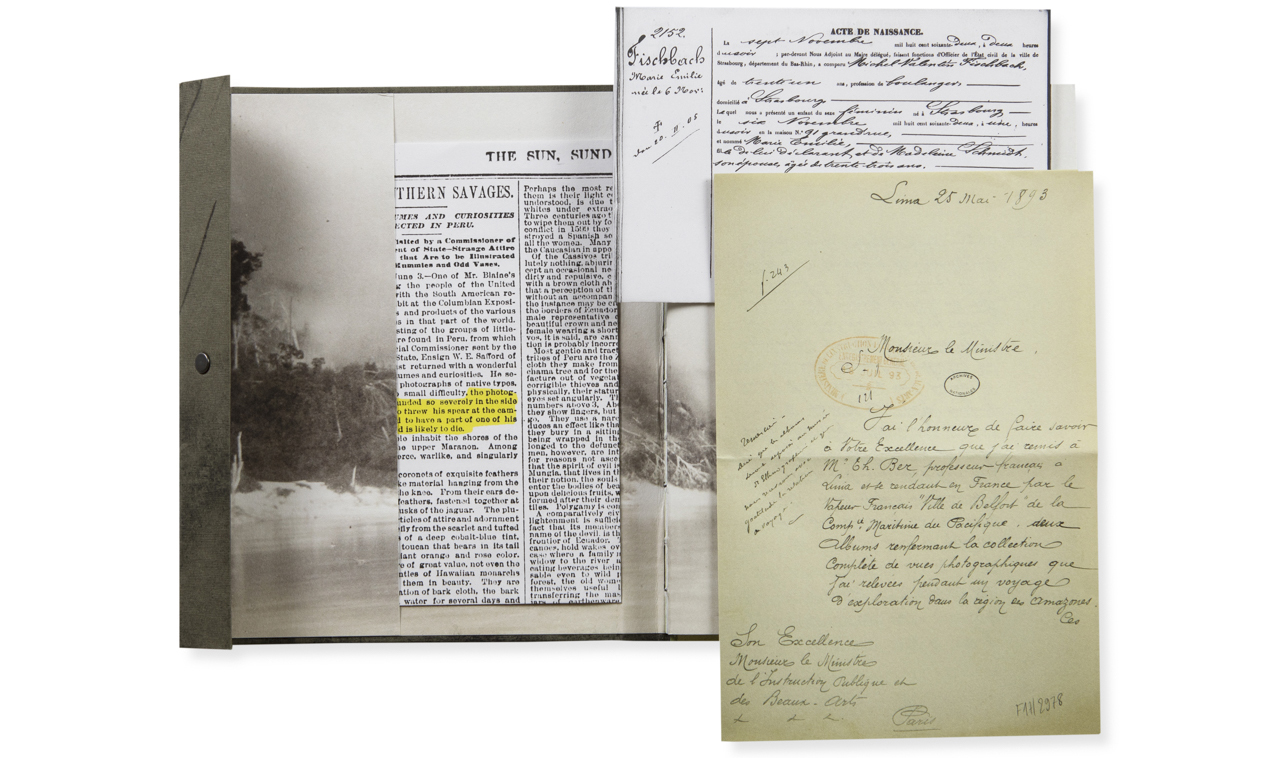 2152.
Fischbach
Marie Emilie
née le 6 Nov.
ACTE DE NAISSANCE.
Le sept Novembre mil huit cent soixante-deux, à deux heures
du soir ; par-devant Nous Adjoint au Maire délégué, faisant fonctions d'Officier de l'État civil de la ville de
Strasbourg, département du Bas-Rhin, a comparu Michel Valentin Fischbach,
âgé de trente un ans, profession de boulanger,
domicilié à Strasbourg
Lequel nous a présenté un enfant du sexe féminin né à Strasbourg,
le six Novembre mil huit cent soixante-deux, à une, heure
du soir en la maison N.° 91 grand'rue,
et nommé Marie Emilie,
fille de lui déclarant, et de Madeleine Schmidt,
son épouse, âgée de trente-trois ans.
THE SUN, SUND
THERN SAVAGES.
UMES AND CURIOSITIES
ECTED IN PERU.
isited by a Commissioner of
ent of State—Strange Attire
that Are to be Illustrated
Mummies and Odd Vases.
June 3.—One of Mr. Blaine's
g the people of the United
with the South American re-
bit at the Columbian Exposi-
s and products of the various
s in that part of the world.
sting of the groups of little-
re found in Peru, from which
ial Commissioner sent by the
State, Ensign W. E. Safford of
st returned with a wonderful
umes and curiosities. He se-
photographs of native types,
small difficulty, the photog-
unded so severely in the side
o threw his spear at the cam-
l to have a part of one of his
d is likely to die.
le inhabit the shores of the
he upper Maranon. Among
erce, warlike, and singularly
coronets of exquisite feathers
ke material hanging from the
he knee. From their ears de-
feathers, fastened together at
usks of the jaguar. The plu-
ticles of attire and adornment
fly from the scarlet and tufted
of a deep cobalt-blue tint,
toucan that bears in its tail
iant orange and rose color.
e of great value, not even the
nties of Hawaiian monarchs
them in beauty. They are
ation of bark cloth, the bark
water for several days and
Perhaps the most re
them is their light c
understood, is due t
whites under extrao
Three centuries ago t
to wipe them out by fo
conflict in 1599 they
stroyed a Spanish se
all the women. Many
the Caucasian in appe
Of the Cassivos tri
lutely nothing, abjurin
cept an occasional ne
dirty and repulsive, c
with a brown cloth ab
that a perception of t
without an accompan
the instance may be ci
the borders of Ecuador
male representative o
beautiful crown and ne
female wearing a short
vos, it is said, are can
tion is probably incorre
Most gentle and tract
tribes of Peru are the
cloth they make from
chama tree and for the
facture out of vegeta
corrigible thieves and
physically, their statur
eyes set angularly. T
numbers above 3. Ab
they show fingers, but
go. They use a nar
duces an effect like th
they bury in a sitting
being wrapped in th
longed to the defunct
men, however, are int
for reasons not asce
that the spirit of evil is
Mungia, that lives in t
their notion, the souls
enter the bodies of bea
upon delicious fruits, w
formed after their den
tles. Polygamy is con
A comparatively civ
lightenment is suffici
fact that its member
name of the devil, is th
frontier of Ecuador.
cannes, hold wakes ov
case where a family is
widow to the river a
eating beverages bein
sable even to wild p
forest, the old wom
themselves useful
transferring the mas
ers of earthenware
Lima 25 Mai 1893
f. 243
Monsieur le Ministre,
ARCHIVES
NATIONALES
J'ai l'honneur de faire savoir
à Votre Excellence que j'ai remis à
Mr Ch. Ber, professeur français à
Lima et se rendant en France par le
Vapeur Français "Ville de Belfort" de la
Compie Maritime du Pacifique, deux
Albums renfermant la collection
Complète de vues photographiques que
j'ai relevées pendant un voyage
d'exploration dans la région des Amazones.
Ces
Son Excellence
Monsieur le Ministre
de l'Instruction Publique et
des Beaux-Arts
Paris
F17/2978